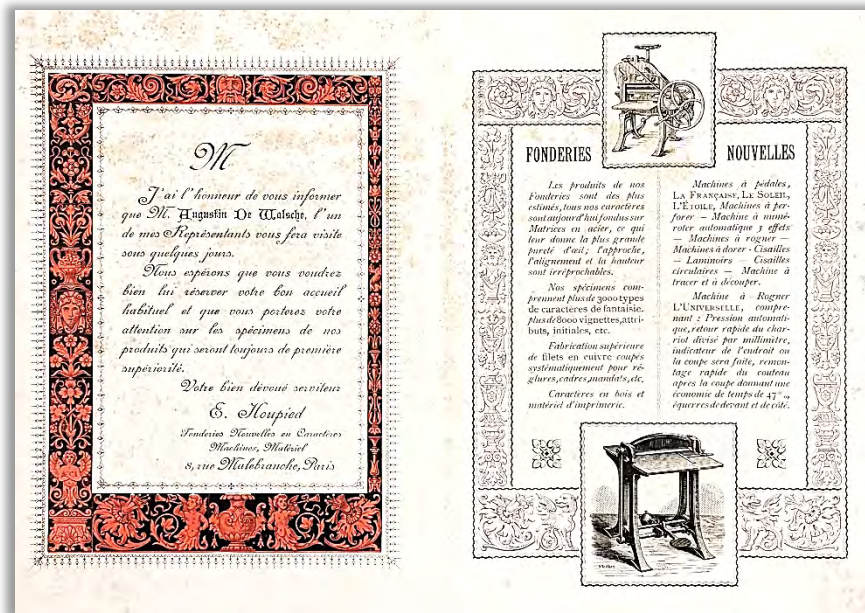 M
J'ai l'honneur de vous informer
que M. Augustin De Walsche, l'un
de mes Représentants vous fera visite
sous quelques jours.
Nous espérons que vous voudrez
bien lui réserver votre bon accueil
habituel et que vous porterez votre
attention sur les spécimens de nos
produits qui seront toujours de première
supériorité.
Votre bien dévoué serviteur
E. Houpied
Fonderies Nouvelles en Caractères
Machines, Matériel
8, rue Malebranche, Paris
FONDERIES
Les produits de nos
Fonderies sont des plus
estimés, tous nos caractères
sont aujourd'hui fondus sur
Matrices en acier, ce qui
leur donne la plus grande
pureté d'œil; l'approche,
l'alignement et la hauteur
sont irréprochables.
Nos spécimens com-
prennent plus de 3000 types
de caractères de fantaisie.
plus de 8000 vignettes, attri-
buts, initiales, etc.
Fabrication supérieure
de filets en cuivre coupés
systématiquement pour ré-
glures, cadres, mandats, etc.
Caractères en bois et
matériel d'imprimerie.
NOUVELLES
Machines à pédales,
LA FRANÇAISE, LE SOLEIL,
L'ÉTOILE, Machines à per-
forer — Machine à numé-
roter automatique 3 effets
— Machines à rogner —
Machines à dorer - Cisailles
— Laminoirs — Cisailles
circulaires — Machine à
tracer et à découper.
Machine à Rogner
L'UNIVERSELLE, compre-
nant : Pression automati-
que, retour rapide du char-
riot divisé par millimètre,
indicateur de l'endroit ou
la coupe sera faite, remon-
tage rapide du couteau
après la coupe donnant une
économie de temps de 47 %,
équerres de devant et de côté.